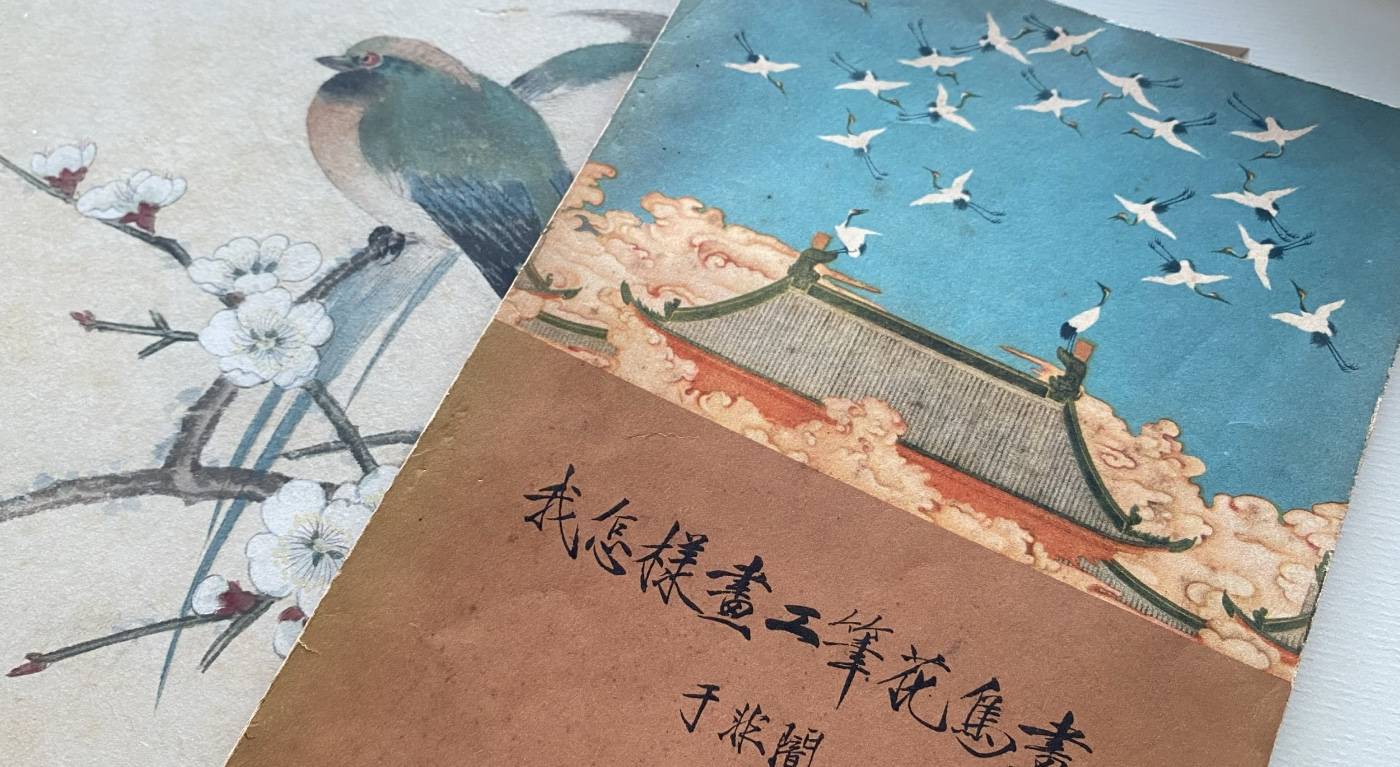 我怎樣畫工筆花鳥畫
于非闇